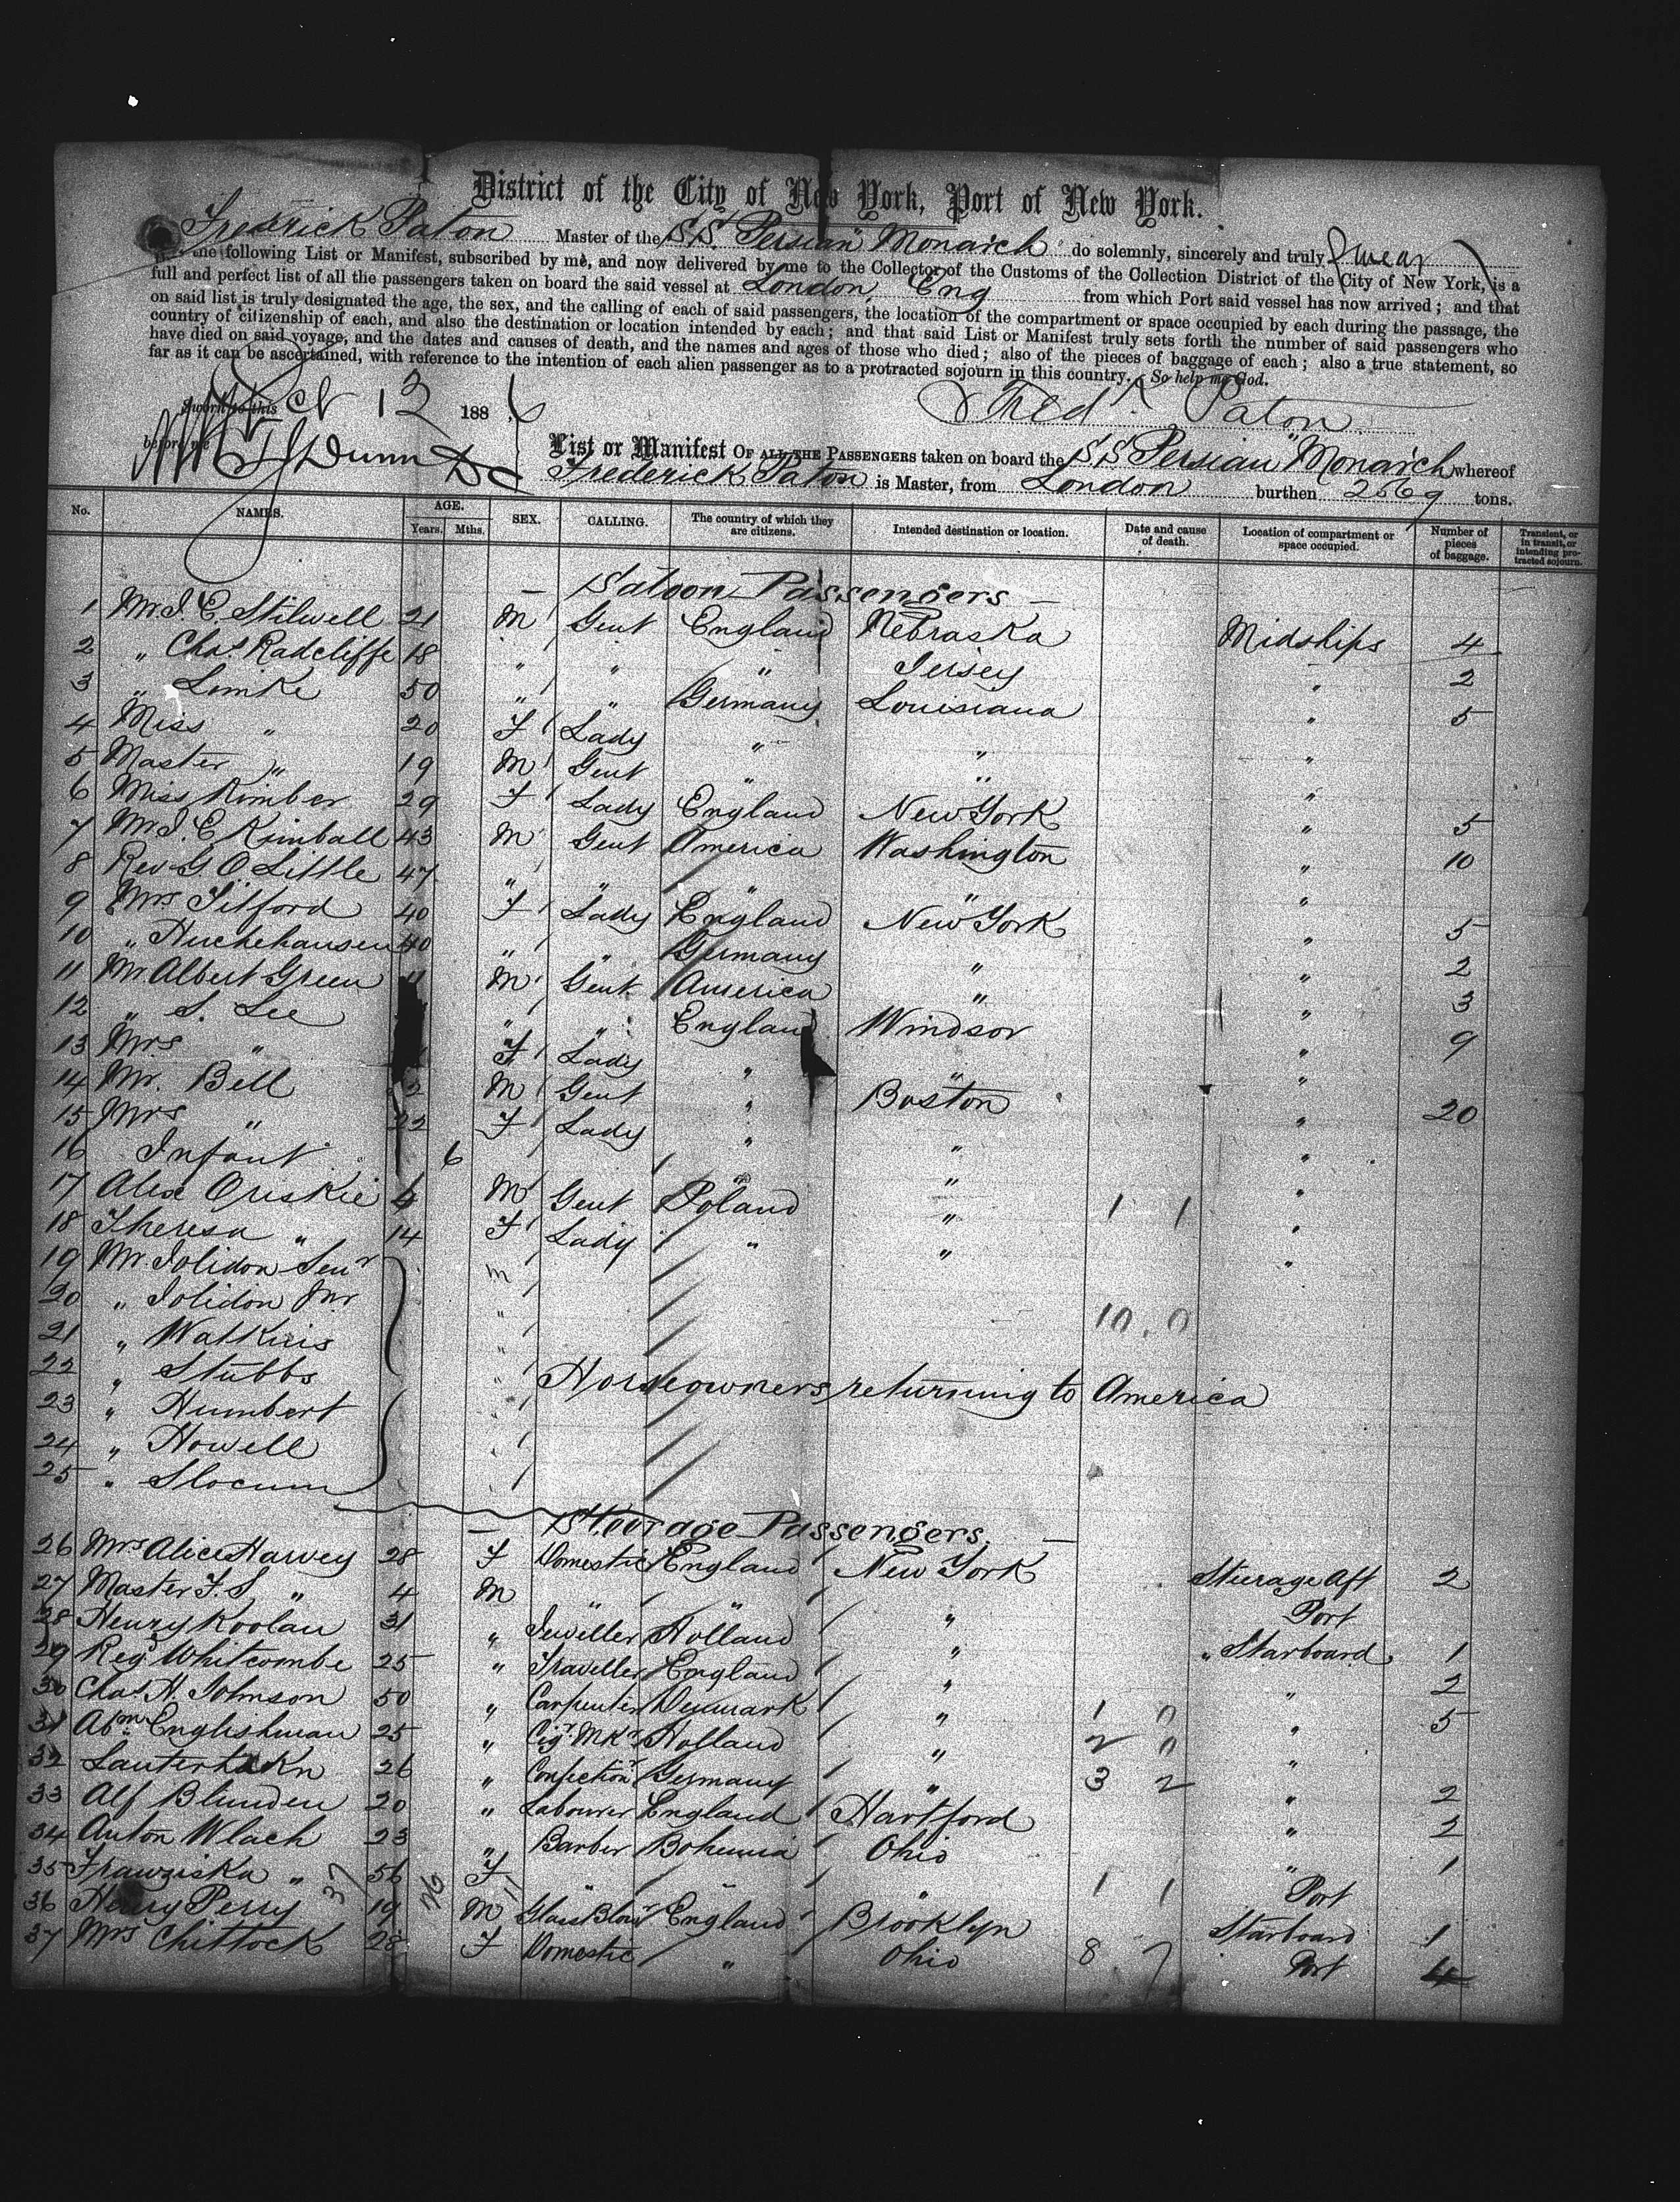 District of the City of New York, Port of New York.
Frederick Paton Master of the SS. "Persian Monarch" do solemnly, sincerely and truly Swear
the following List or Manifest, subscribed by me, and now delivered by me to the Collector of the Customs of the Collection District of the City of New York, is a
full and perfect list of all the passengers taken on board the said vessel at London, Eng from which Port said vessel has now arrived; and that
on said list is truly designated the age, the sex, and the calling of each of said passengers, the location of the compartment or space occupied by each during the passage, the
country of citizenship of each, and also the destination or location intended by each; and that said List or Manifest truly sets forth the number of said passengers who
have died on said voyage, and the dates and causes of death, and the names and ages of those who died; also of the pieces of baggage of each; also a true statement, so
far as it can be ascertained, with reference to the intention of each alien passenger as to a protracted sojourn in this country. So help me God.
Sworn to this Oct 12 1886
Fredk Paton
before me Dunn
List or Manifest OF ALL THE PASSENGERS taken on board the SS "Persian Monarch" whereof
Frederick Paton is Master, from London burthen 2569 tons.
No. NAMES. AGE. Years. Mths. SEX. CALLING. The country of which they are citizens. Intended destination or location. Date and cause of death. Location of compartment or space occupied. Number of pieces of baggage. Transient, or in transit, or intending protracted sojourn.
— Saloon Passengers —
1 Mr. J. E. Stilwell 21 M Gent England Nebraska Midships 4
2 " Chas Radcliffe 18 " " " Jersey " 2
3 " Limke 50 " " Germany Louisiana " 5
4 Miss " 20 F Lady " " "
5 Master " 19 M Gent " " "
6 Miss Kimber 29 F Lady England New York " 5
7 Mr. J. E. Kimball 43 M Gent America Washington " 10
8 Rev. G. O. Little 47 " " " " "
9 Mrs Titford 40 F Lady England New York " 5
10 " Huchehausen 40 " " Germany " " 2
11 Mr Albert Green M Gent America " " 3
12 " S. Lee " " England Windsor " 9
13 Mrs " F Lady " " "
14 Mr. Bell 2 M Gent " Boston " 20
15 Mrs " 22 F Lady " " "
16 Infant 6 " " "
17 Alex Oriskie M Gent Poland " 1 1 "
18 Theresa " 14 F Lady " " "
19 Mr. Jolidon Senr m
20 " Jolidon Jnr " 10.0
21 " Watkins "
22 " Stubbs " Horseowners returning to America
23 " Humbert "
24 " Howell "
25 " Slocum "
— Steerage Passengers —
26 Mrs Alice Harvey 28 F Domestic England New York Steerage Aft 2
27 Master F. S. " 4 M " " " Port
28 Henry Koolan 31 " Jeweller Holland " " Starboard 1
29 Regd Whitcombe 25 " Traveller England " " 2
30 Chas H. Johnson 50 " Carpenter Denmark " 1 0 " 5
31 Abm Englishman 25 " Cigr Mkr Holland " 2 0 "
32 26 " Confectionr Germany " 3 2 " 2
33 Alf Blunden 20 " Labourer England Hartford " 2
34 Anton Wlach 23 " Barber Bohemia Ohio " 1
35 Franziska " 37 56 26 F " " " 1 1 Port
36 Henry Perry 19 M Glass Blowr England Brooklyn Starboard 1
37 Mrs Chittock 28 F Domestic " Ohio 8 7 Port 4